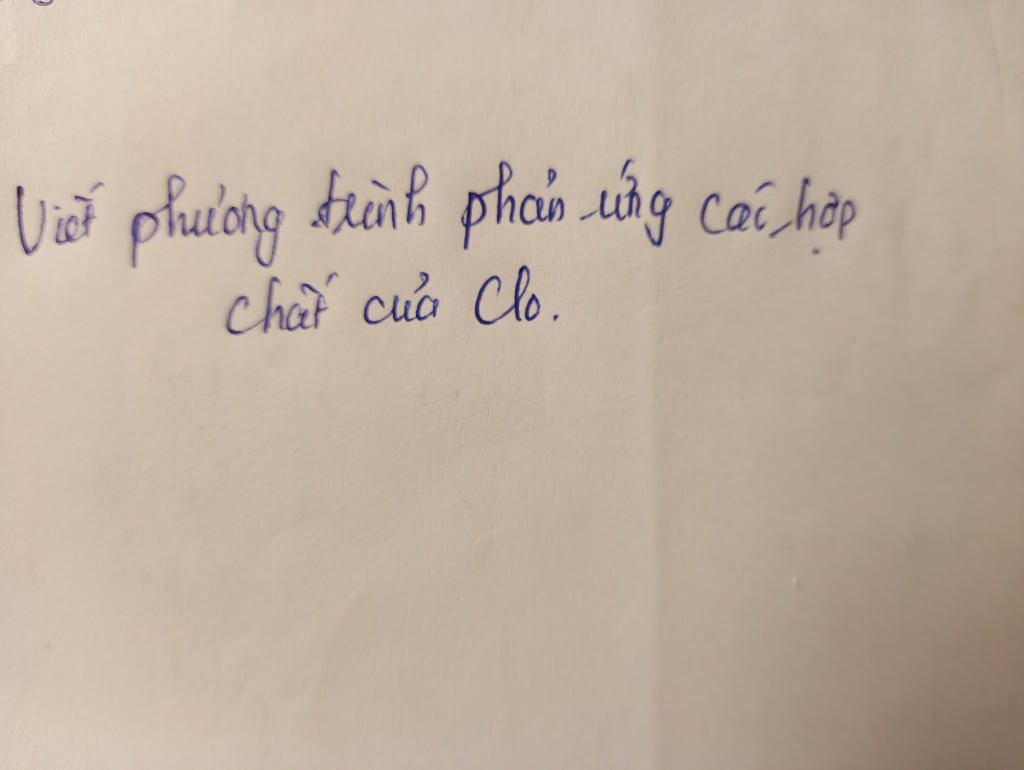 Viết phương trình phản ứng các hợp
chất của Clo.